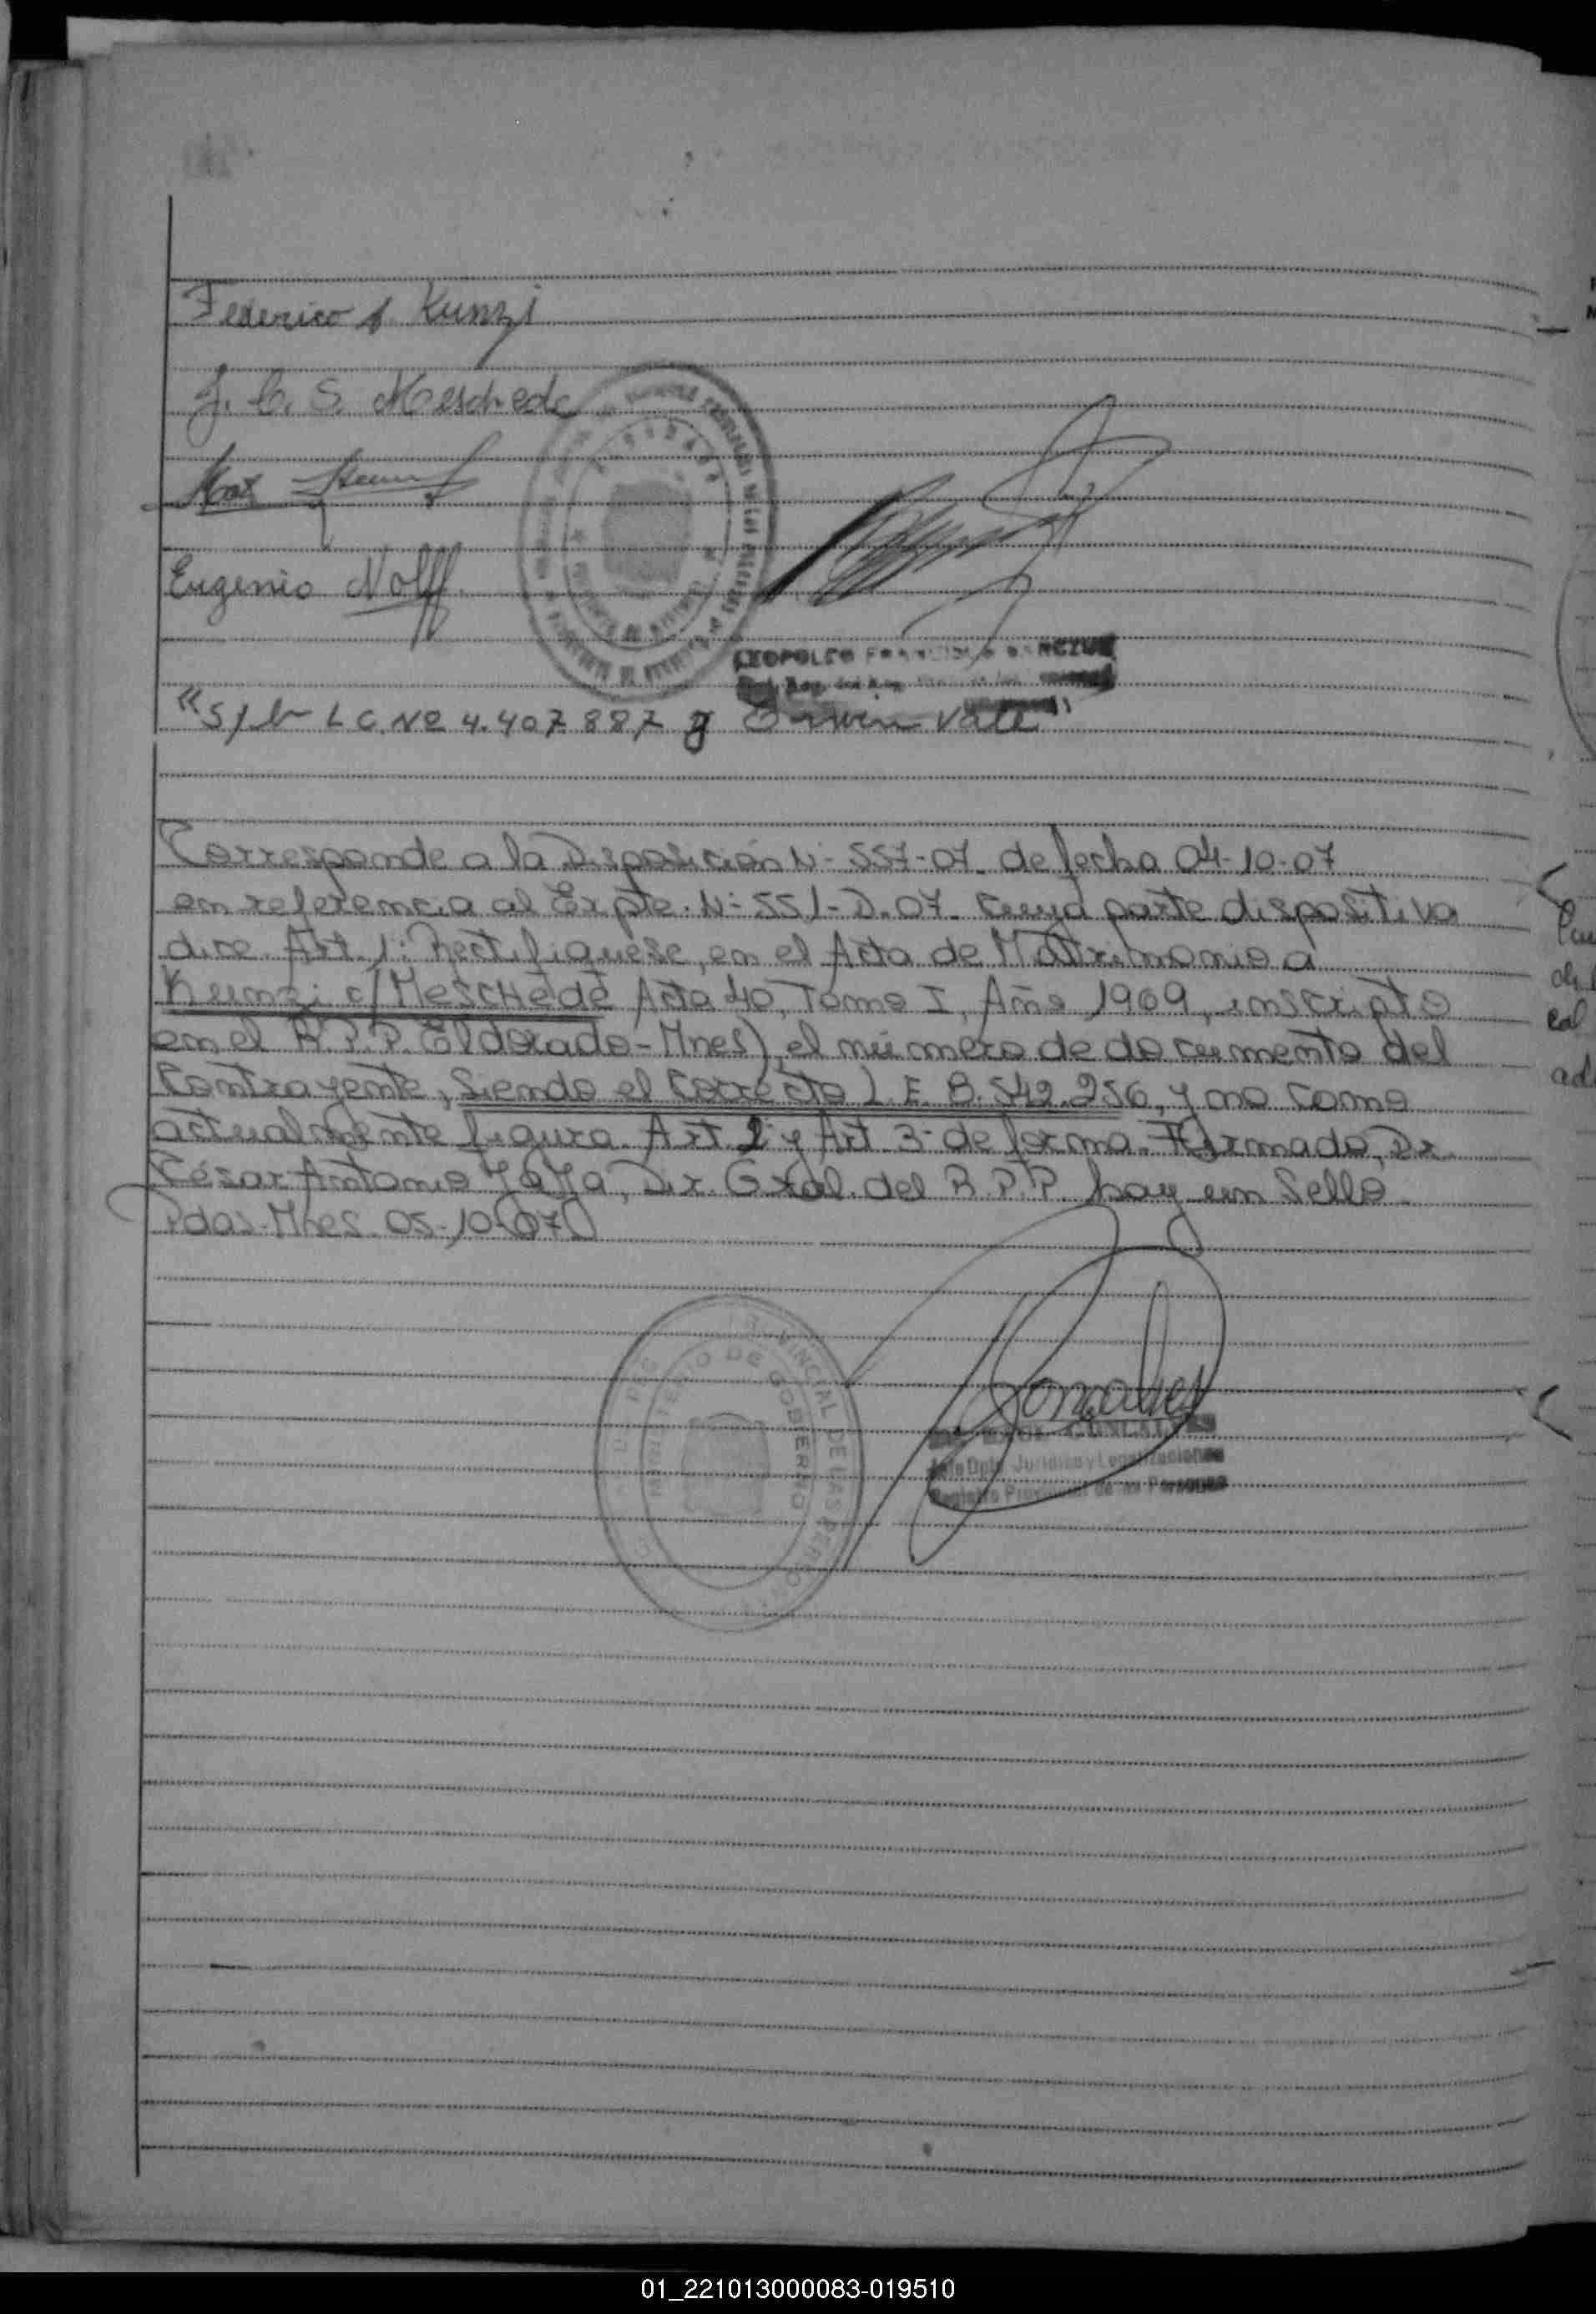 Federico A. Kunzi
J. C. S. Meschede
Eugenio Nolff.
LEOPOLDO FRANCISCO
"S/b L C. No 4.407.887 y Erwin Vale"
Corresponde a la Disposición N- 557-07. de fecha 04-10-07
en referencia al Expte. N- 551-D.07. cuya parte dispositiva
dice. Art. 1: Rectifiquese, en el Acta de Matrimonio a
Kunzi c/ Meschede Acta 40, Tomo I, Año 1969, inscripto
en el R.P.P. Eldorado-Mnes), el número de documento del
Contrayente, Siendo el correcto L.E. 8.542.256, y no como
actualmente figura. Art. 2- y Art 3- de forma. Firmado, Dr.
César Antonio YaYa, Dir. Gral. del R.P.P. hay un Sello.
Pdas-Mnes. 05-10-07
PROVINCIAL DE LAS PERSO
MINISTERIO DE GOBIERNO
Goncalves
GONCALVES
Jefe Dpto Jurídico y Legalizaciones
Registro Provincial de las Personas
01_221013000083-019510